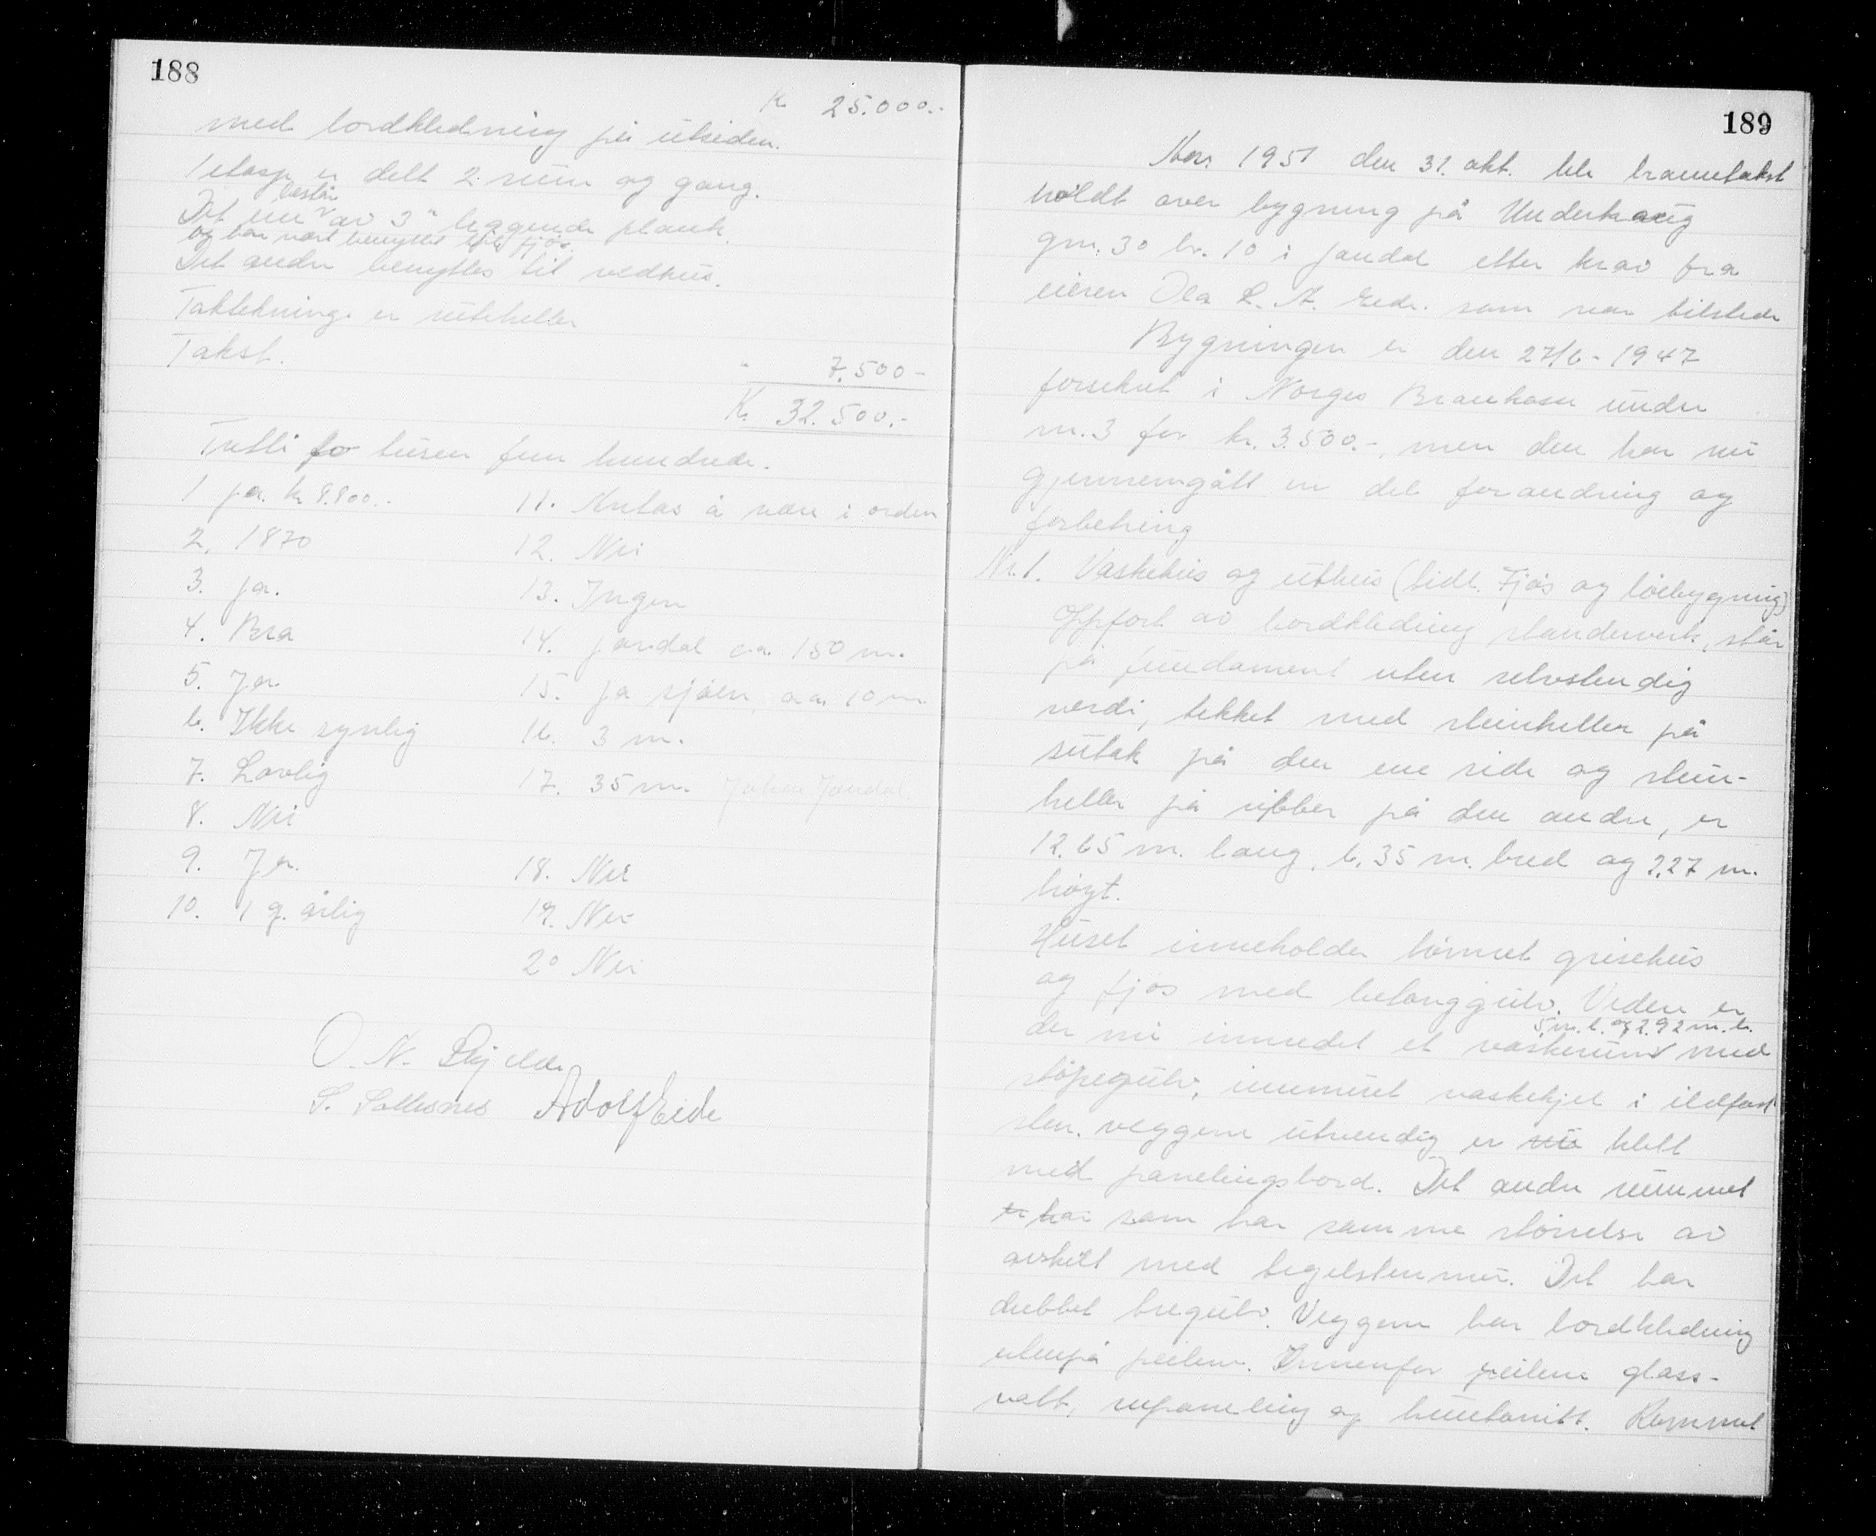 188
Kr 25.000.-
med bordkledning på utsiden.
1 etasje er delt 2 rum og gang.
består
Det ene av 3" leggende plank.
og har vært benyttet til fjøs.
Det andre benyttes til vedhus.
Taktekning er ruteheller
Takst. " 7.500-
Kr. 32.500.-
Tretti to tusen fem hundrede.
1 ja. kr 8.800.-
2. 1870
3. ja.
4. Bra
5. Ja
6. Ikke synlig
7. Lovlig
8. Nei
9. Ja.
10. 1 g. årlig
11. Antas å være i orden
12. Nei
13. Ingen
14. Jondal ca. 150 m.
15. ja sjøen, ca. 10 m.
16. 3 m.
17. 35 m. Jondal
18. Nei
19. Nei
20 Nei
O. N.
S. Sollesnes Adolf Eide
189
1951 den 31. okt. ble brannetakst
holdt over bygning på Underhaug
gnr. 30 br. 10 i Jondal etter krav fra
eieren Ola L. A. som var tilstede
Bygningen er den 27/6-1947
forsikret i Norges Brankasse under
nr. 3 for kr. 3.500.-, men den har nu
gjennemgått en del forandring og
forbetring
Nr. 1. Vaskehus og uthus (tidl. Fjøs og løebygning)
Oppført av bordkledning standerverk, står
på fundament uten selvstendig
verdi, tekket med steinheller på
sutak på den ene side og stein-
heller på ribber på den andre, er
12.65 m. lang, 6.35 m. bred og 2.27 m.
høgt.
Huset inneholder tømret grisehus
og fjøs med betonggulv. Viden er
5 m. l. og 2.92 m. b.
der nu innredet et vaskerum med
støpegulv, innmuret vaskekjel i ildfast
sten. veggene utvendig er nu kledt
med panelingsbord. Det andre rummet
er har som har samme størrelse er
avskilt med teglstenmur. Det har
dubbet tregulv. Veggene har bordkledning
utenpå peilene. Innenfor peilene glass-
vatt, rupaneling og huntonitt. Rommet